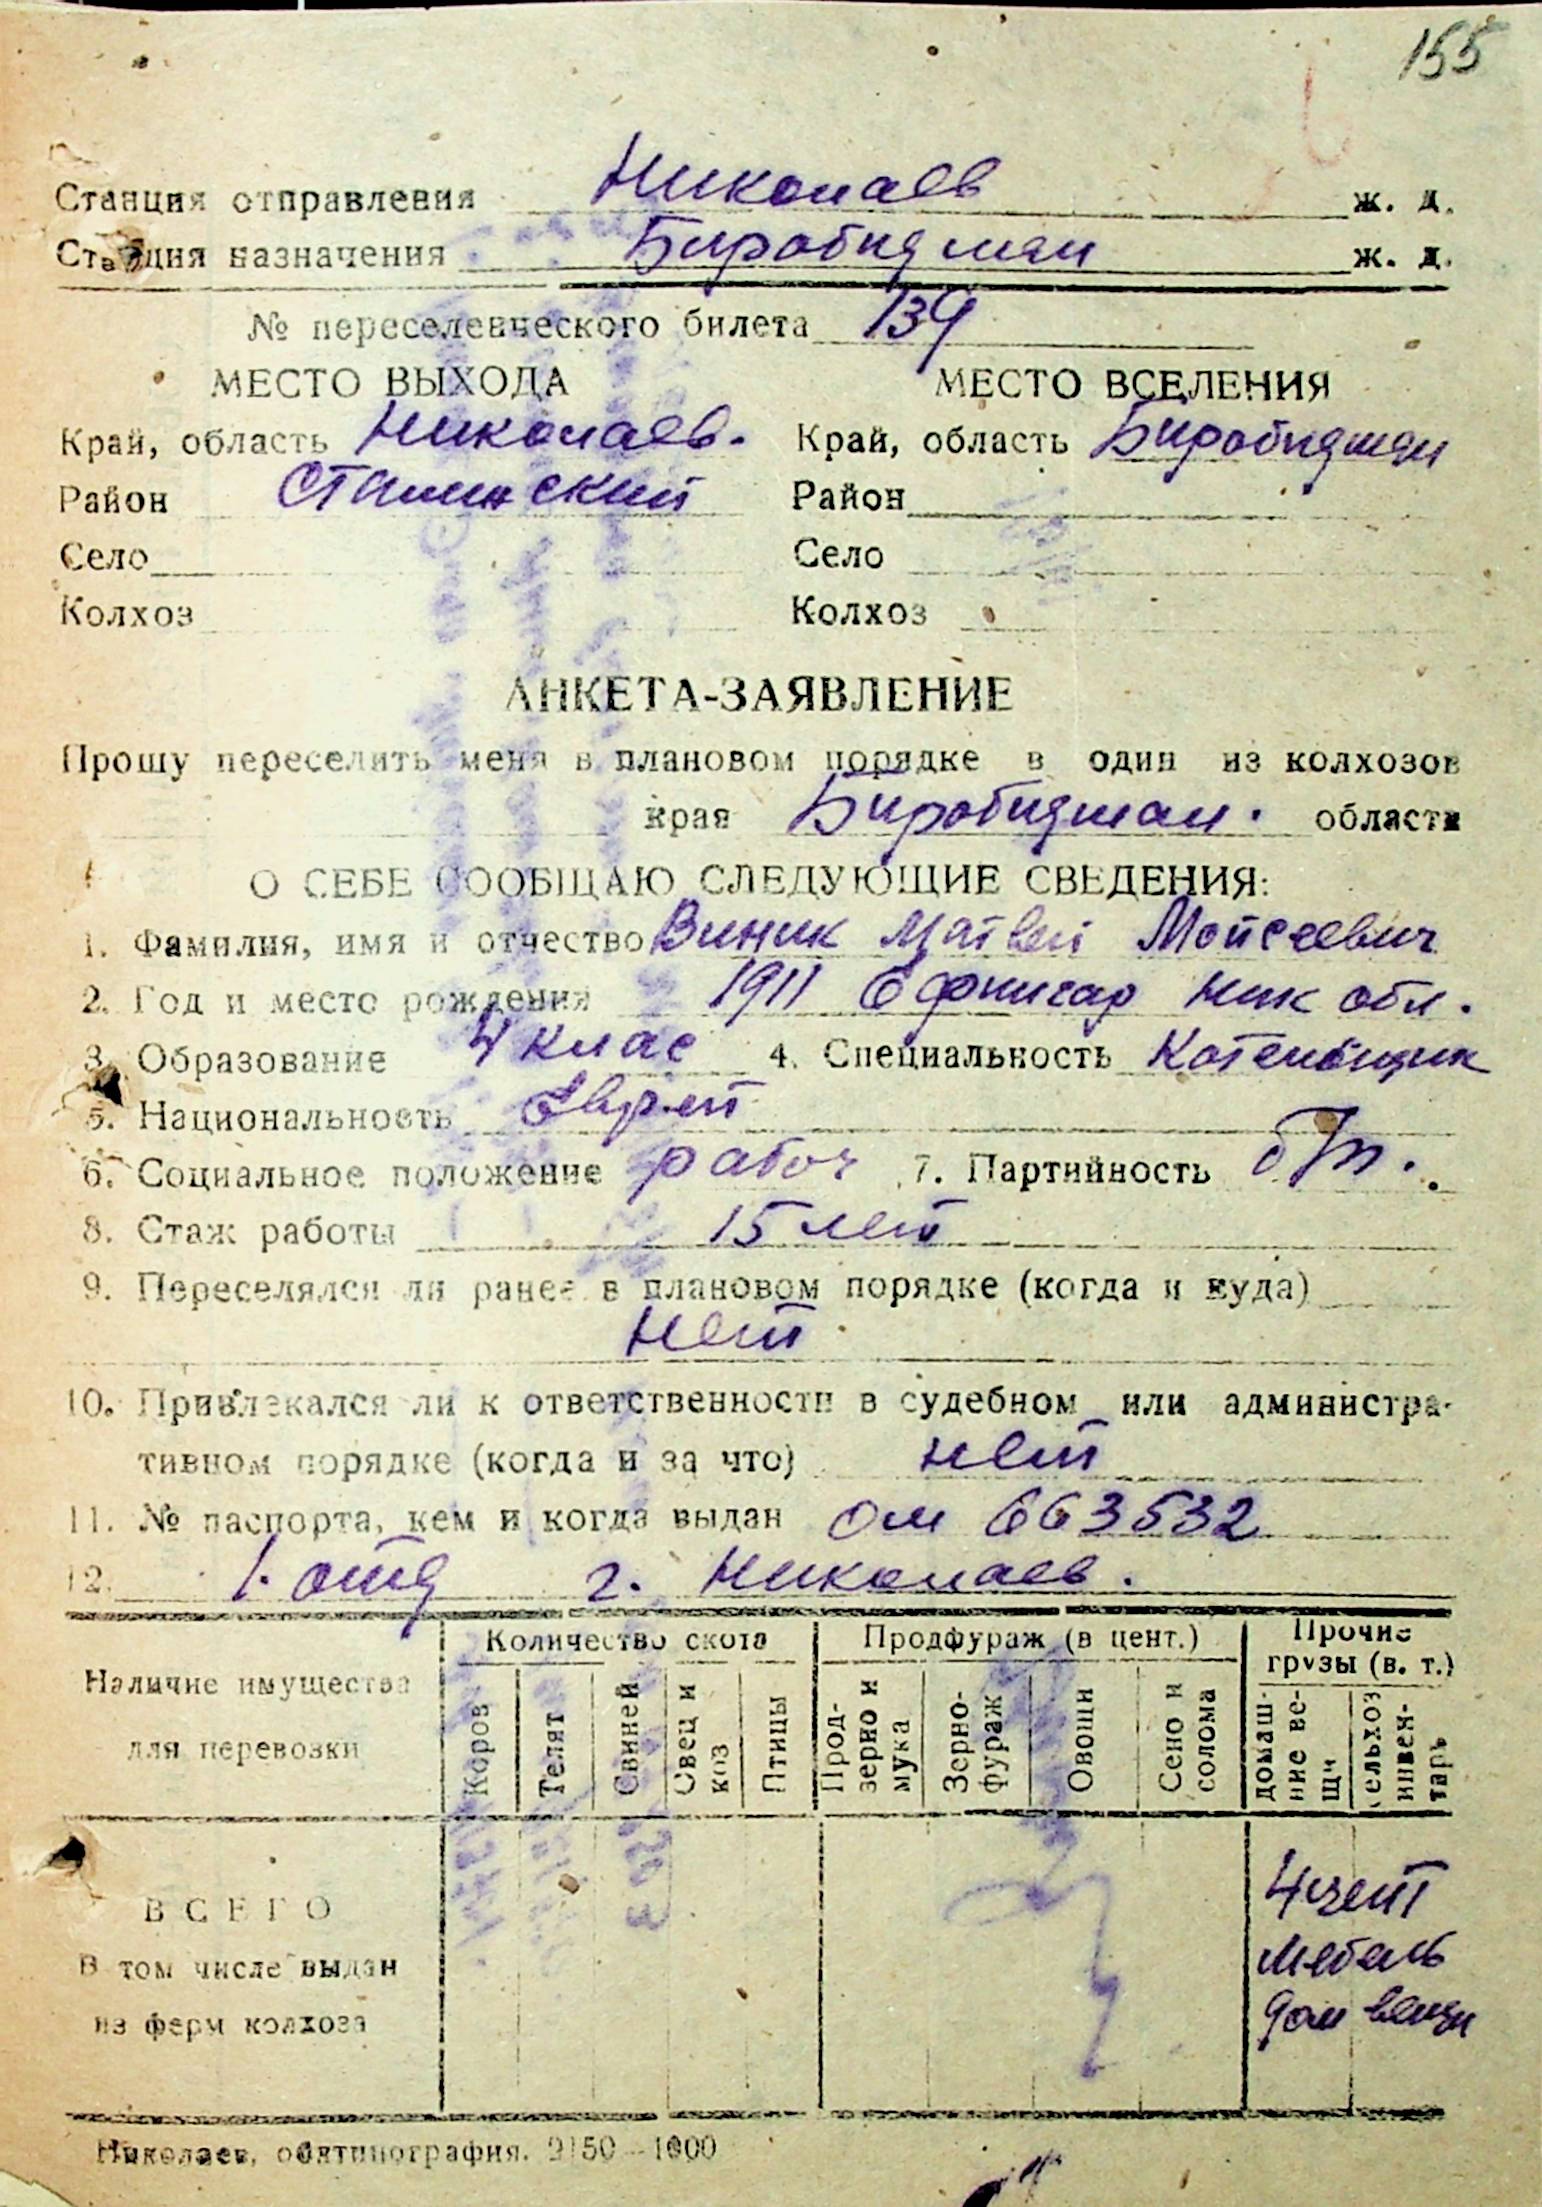 155
Станция отправления Николаев ж. д.
Станция назначения Биробиджан ж. д.
№ переселенческого билета 139
МЕСТО ВЫХОДА МЕСТО ВСЕЛЕНИЯ
Край, область Николаев. Край, область Биробиджан
Район Сталинский Район
Село Село
Колхоз Колхоз
АНКЕТА-ЗАЯВЛЕНИЕ
Прошу переселить меня в плановом порядке в один из колхозов
края Биробиджан. области
О СЕБЕ СООБЩАЮ СЛЕДУЮЩИЕ СВЕДЕНИЯ:
1. Фамилия, имя и отчество Виник Матвей Мойсеевич
2. Год и место рождения 1911 Ефингар Ник обл.
3. Образование 4 клас 4. Специальность Котельщик
5. Национальность Еврей
6. Социальное положение рабоч 7. Партийность б/п.
8. Стаж работы 15 лет
9. Переселялся ли ранее в плановом порядке (когда и куда)
нет
10. Привлекался ли к ответственности в судебном или администра-
тивном порядке (когда и за что) нет
11. № паспорта, кем и когда выдан ОМ 663532
12. 1. отд г. Николаев.
Количество скота Продфураж (в цент.) Прочие грузы (в. т.)
Наличие имущества для перевозки Коров Телят Свиней Овец и коз Птицы Прод-зерно и мука Зерно-фураж Овощи Сено и солома домаш-ние ве-щи сельхоз инвен-тарь
ВСЕГО 4 цент
В том числе выдан мебель
из ферм колхоза дом вещи
Николаев, облтипография. 2150—1000